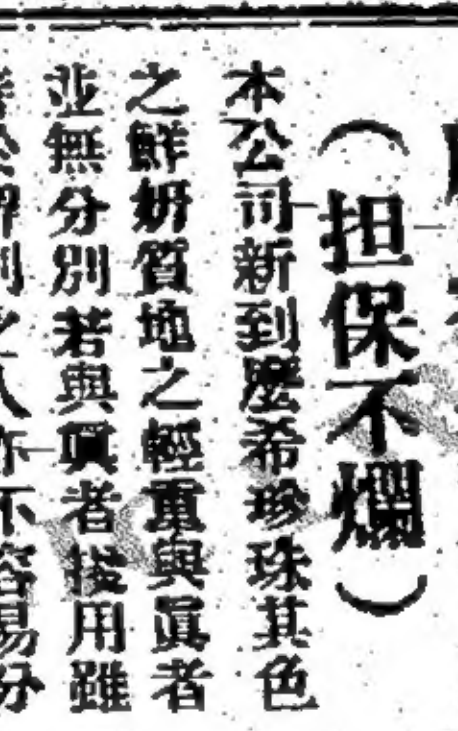 （担保不爛）
本公司新到麼希珍珠其色
之鮮妍質地之輕重與眞者
並無分別若與眞者接用雖
善於辨別之人亦不容易分